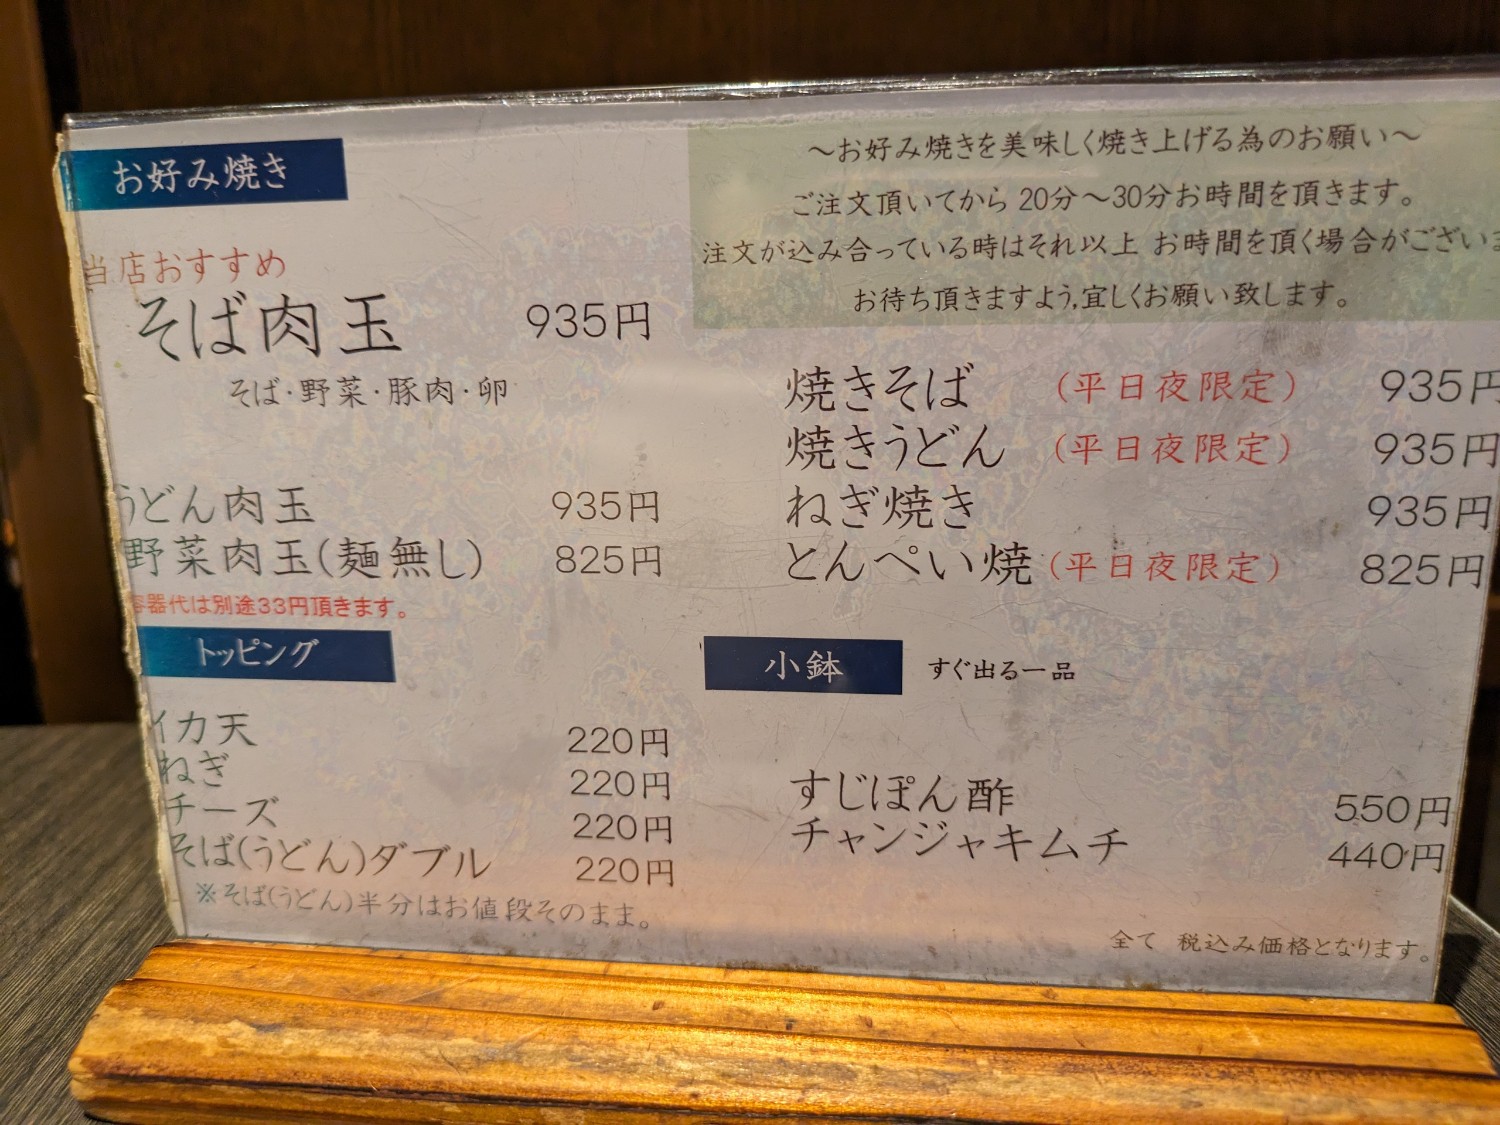 お好み焼き
当店おすすめ
そば肉玉 935円
そば・野菜・豚肉・卵
うどん肉玉 935円
野菜肉玉(麺無し) 825円
容器代は別途33円頂きます。
トッピング
イカ天 220円
ねぎ 220円
チーズ 220円
そば(うどん)ダブル 220円
※そば(うどん)半分はお値段そのまま。
～お好み焼きを美味しく焼き上げる為のお願い～
ご注文頂いてから 20分～30分お時間を頂きます。
注文が込み合っている時はそれ以上 お時間を頂く場合がございま
お待ち頂きますよう,宜しくお願い致します。
焼きそば (平日夜限定) 935円
焼きうどん (平日夜限定) 935円
ねぎ焼き 935円
とんぺい焼 (平日夜限定) 825円
小鉢 すぐ出る一品
すじぽん酢 550円
チャンジャキムチ 440円
全て 税込み価格となります。